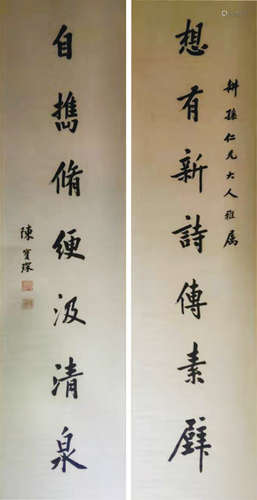 斠孫仁兄大人雅属
想有新詩傳素壁
自攜脩綆汲清泉
陳寶琛